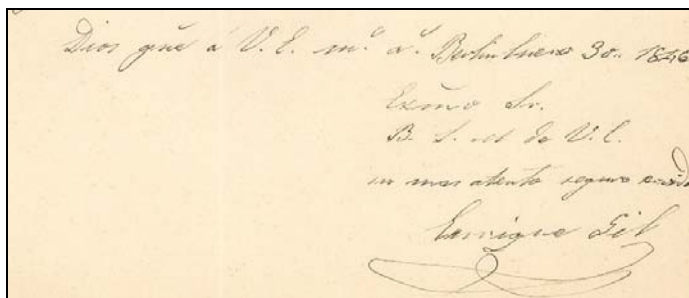 Dios güe á V. E. m.s a.s Berlin Enero 30.. 1846
Exmo Sr.
B. L. M. de V. E.
su mas atento seguro servidor
Enrique Gil